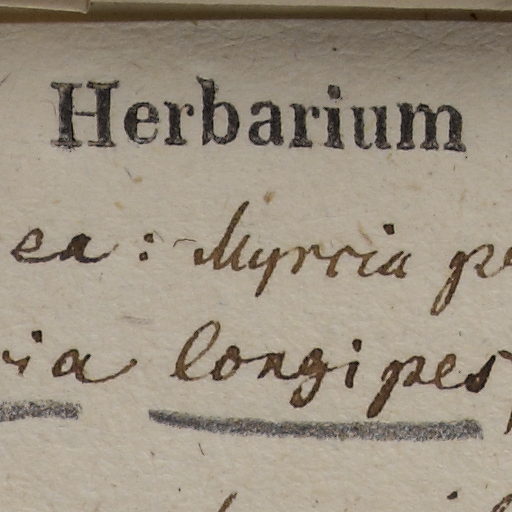 Herbarium
ea: Myrcia pe
ia longipes,